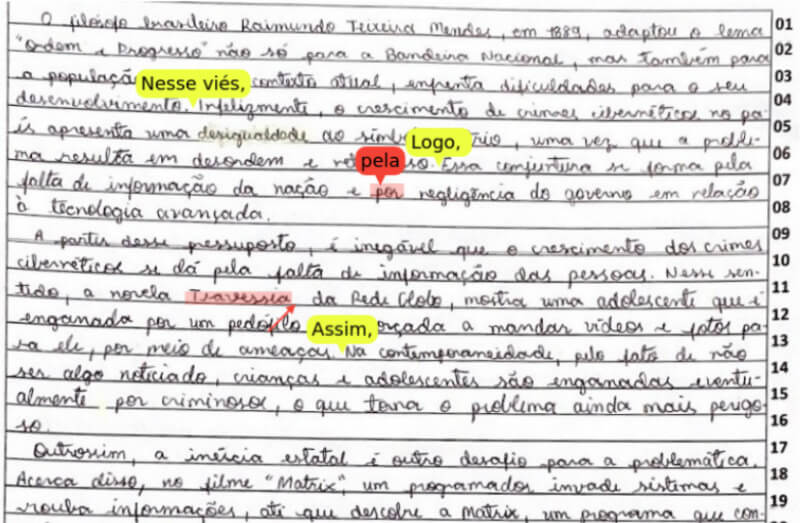 O filósofo brasileiro Raimundo Teixeira Mendes, em 1889, adaptou o lema 01
"Ordem e Progresso" não só para a Bandeira Nacional, mas também para 02
a população contexto atual, enfrenta dificuldades para o seu 03
Nesse viés,
desenvolvimento. Infelizmente, o crescimento de crimes cibernéticos no pa- 04
ís apresenta uma desigualdade ao, uma vez que a proble- 05
Logo,
ma resulta em desordem e. Essa conjuntura se forma pela 06
pela
falta de informação da nação e por negligência do governo em relação 07
à tecnologia avançada. 08
A partir desse pressuposto, é inegável que o crescimento dos crimes 09
cibernéticos se dá pela falta de informação das pessoas. Nesse sen- 10
tido, a novela Travessia da Rede Globo, mostra uma adolescente que é 11
enganada por um pedófilo forçada a mandar vídeos e fotos pa- 12
Assim,
ra ele, por meio de ameaças. Na contemporaneidade, pelo fato de não 13
ser algo noticiado, crianças e adolescentes são enganadas eventu- 14
almente por criminosos, o que torna o problema ainda mais perigo- 15
so. 16
Outrossim, a inércia estatal é outro desafio para a problemática. 17
Acerca disso, no filme "Matrix", um programador invade sistemas e 18
rouba informações, até que descobre a Matrix, um programa que con- 19